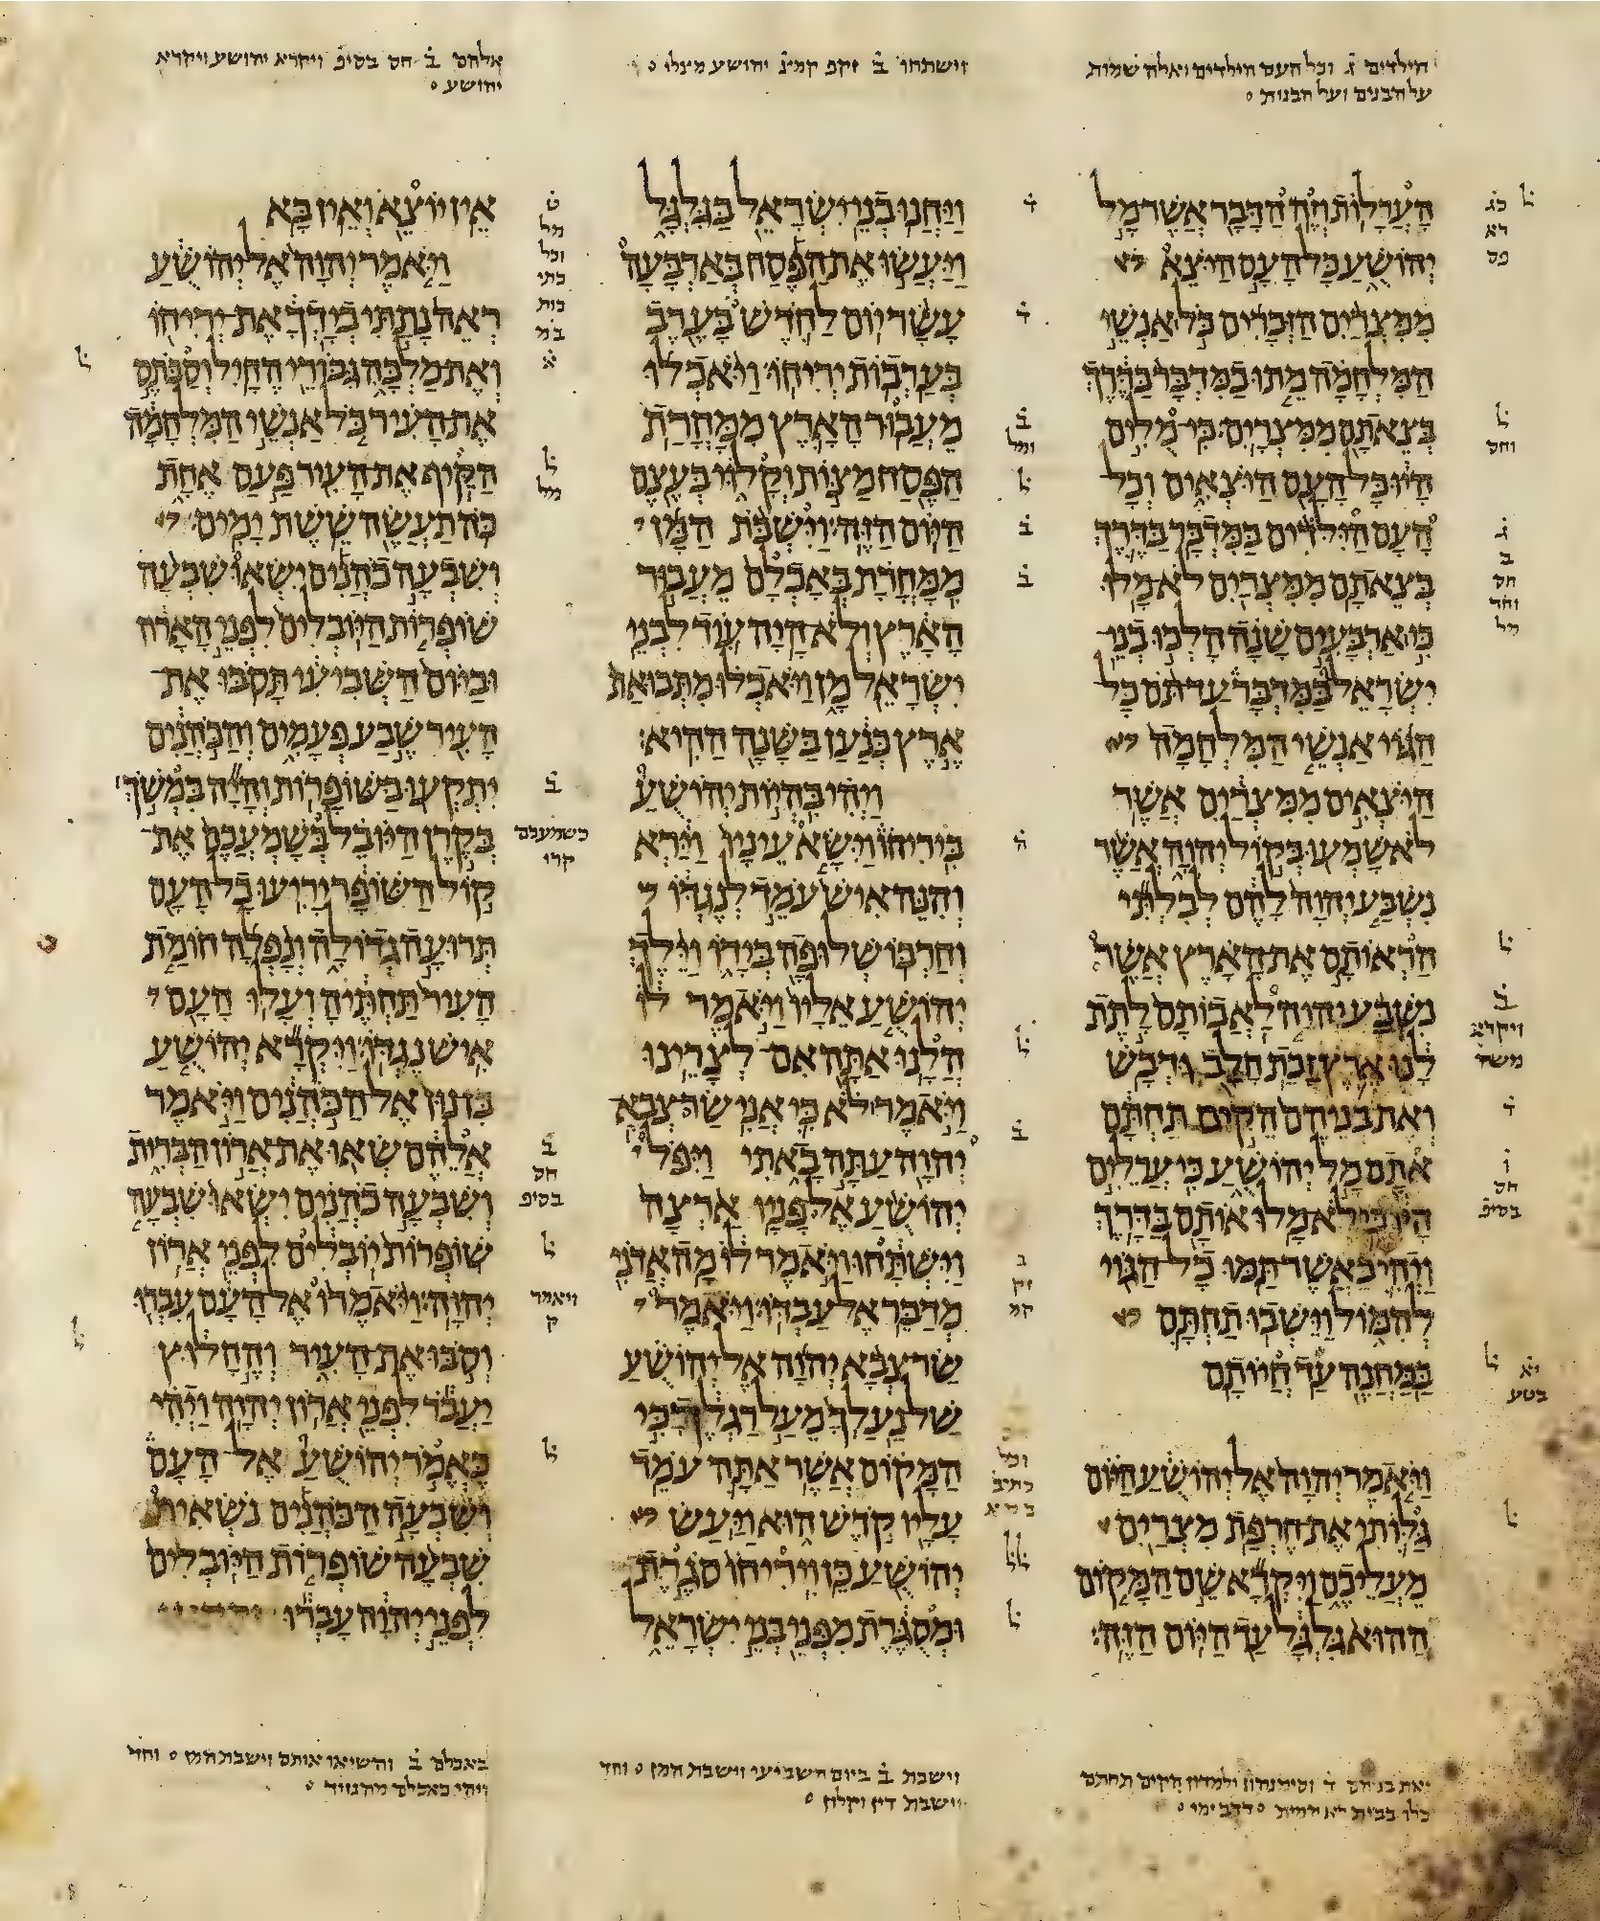 הילדים ג֗ וכל העם הילדים ואלה שמות
על הבנים ועל הבנות ס
הָעֲרָלוֹת׃ וְזֶה הַדָּבָר אֲשֶׁר מָל
יְהוֹשֻׁעַ כָּל הָעָם הַיֹּצֵא
מִמִּצְרַיִם הַזְּכָרִים כֹּל אַנְשֵׁי
הַמִּלְחָמָה מֵתוּ בַמִּדְבָּר בַּדֶּרֶךְ
בְּצֵאתָם מִמִּצְרָיִם׃ כִּי מֻלִים
הָיוּ כָּל הָעָם הַיֹּצְאִים וְכָל
הָעָם הַיִּלֹּדִים בַּמִּדְבָּר בַּדֶּרֶךְ
בְּצֵאתָם מִמִּצְרַיִם לֹא מָלוּ׃
כִּי אַרְבָּעִים שָׁנָה הָלְכוּ בְנֵי
יִשְׂרָאֵל בַּמִּדְבָּר עַד תֹּם כָּל
הַגּוֹי אַנְשֵׁי הַמִּלְחָמָה
הַיֹּצְאִים מִמִּצְרַיִם אֲשֶׁר
לֹא שָׁמְעוּ בְּקוֹל יְהוָה אֲשֶׁר
נִשְׁבַּע יְהוָה לָהֶם לְבִלְתִּי
הַרְאוֹתָם אֶת הָאָרֶץ אֲשֶׁר
נִשְׁבַּע יְהוָה לַאֲבוֹתָם לָתֶת
לָנוּ אֶרֶץ זָבַת חָלָב וּדְבָשׁ׃
וְאֶת בְּנֵיהֶם הֵקִים תַּחְתָּם
אֹתָם מָל יְהוֹשֻׁעַ כִּי עֲרֵלִים
הָיוּ כִּי לֹא מָלוּ אוֹתָם בַּדָּרֶךְ׃
וַיְהִי כַּאֲשֶׁר תַּמּוּ כָל הַגּוֹי
לְהִמּוֹל וַיֵּשְׁבוּ תַחְתָּם
בַּמַּחֲנֶה עַד חֲיוֹתָם׃
וַיֹּאמֶר יְהוָה אֶל יְהוֹשֻׁעַ הַיּוֹם
גַּלּוֹתִי אֶת חֶרְפַּת מִצְרַיִם
מֵעֲלֵיכֶם וַיִּקְרָא שֵׁם הַמָּקוֹם
הַהוּא גִּלְגָּל עַד הַיּוֹם הַזֶּה׃
וישתחו ב֗ זקפ קמץ יהושע מצלי ס
וַיַּחֲנוּ בְנֵי יִשְׂרָאֵל בַּגִּלְגָּל
וַיַּעֲשׂוּ אֶת הַפֶּסַח בְּאַרְבָּעָה
עָשָׂר יוֹם לַחֹדֶשׁ בָּעֶרֶב
בְּעַרְבוֹת יְרִיחוֹ׃ וַיֹּאכְלוּ
מֵעֲבוּר הָאָרֶץ מִמָּחֳרַת
הַפֶּסַח מַצּוֹת וְקָלוּי בְּעֶצֶם
הַיּוֹם הַזֶּה׃ וַיִּשְׁבֹּת הַמָּן
מִמָּחֳרָת בְּאָכְלָם מֵעֲבוּר
הָאָרֶץ וְלֹא הָיָה עוֹד לִבְנֵי
יִשְׂרָאֵל מָן וַיֹּאכְלוּ מִתְּבוּאַת
אֶרֶץ כְּנַעַן בַּשָּׁנָה הַהִיא׃
וַיְהִי בִּהְיוֹת יְהוֹשֻׁעַ
בִּירִיחוֹ וַיִּשָּׂא עֵינָיו וַיַּרְא
וְהִנֵּה אִישׁ עֹמֵד לְנֶגְדּוֹ
וְחַרְבּוֹ שְׁלוּפָה בְּיָדוֹ וַיֵּלֶךְ
יְהוֹשֻׁעַ אֵלָיו וַיֹּאמֶר לוֹ
הֲלָנוּ אַתָּה אִם לְצָרֵינוּ׃
וַיֹּאמֶר לֹא כִּי אֲנִי שַׂר צְבָא
יְהוָה עַתָּה בָאתִי וַיִּפֹּל
יְהוֹשֻׁעַ אֶל פָּנָיו אַרְצָה
וַיִּשְׁתָּחוּ וַיֹּאמֶר לוֹ מָה אֲדֹנִי
מְדַבֵּר אֶל עַבְדּוֹ׃ וַיֹּאמֶר
שַׂר צְבָא יְהוָה אֶל יְהוֹשֻׁעַ
שַׁל נַעַלְךָ מֵעַל רַגְלֶךָ כִּי
הַמָּקוֹם אֲשֶׁר אַתָּה עֹמֵד
עָלָיו קֹדֶשׁ הוּא וַיַּעַשׂ
יְהוֹשֻׁעַ כֵּן׃ וִירִיחוֹ סֹגֶרֶת
וּמְסֻגֶּרֶת מִפְּנֵי בְּנֵי יִשְׂרָאֵל
אלהם ב֗ חס בסיפ ויקרא יהושע ויקרא
יהושע ס
אֵין יוֹצֵא וְאֵין בָּא׃
וַיֹּאמֶר יְהוָה אֶל יְהוֹשֻׁעַ
רְאֵה נָתַתִּי בְיָדְךָ אֶת־יְרִיחוֹ
וְאֶת מַלְכָּהּ גִּבּוֹרֵי הֶחָיִל׃ וְסַבֹּתֶם
אֶת הָעִיר כֹּל אַנְשֵׁי הַמִּלְחָמָה
הַקֵּיף אֶת הָעִיר פַּעַם אֶחָת
כֹּה תַעֲשֶׂה שֵׁשֶׁת יָמִים׃
וְשִׁבְעָה כֹהֲנִים יִשְׂאוּ שִׁבְעָה
שׁוֹפְרוֹת הַיּוֹבְלִים לִפְנֵי הָאָרוֹן
וּבַיּוֹם הַשְּׁבִיעִי תָּסֹבּוּ אֶת־
הָעִיר שֶׁבַע פְּעָמִים וְהַכֹּהֲנִים
יִתְקְעוּ בַּשּׁוֹפָרוֹת׃ וְהָיָה בִּמְשֹׁךְ
בְּקֶרֶן הַיּוֹבֵל בְּשָׁמְעֲכֶם אֶת־
קוֹל הַשּׁוֹפָר יָרִיעוּ כָל הָעָם
תְּרוּעָה גְדוֹלָה וְנָפְלָה חוֹמַת
הָעִיר תַּחְתֶּיהָ וְעָלוּ הָעָם
אִישׁ נֶגְדּוֹ׃ וַיִּקְרָא יְהוֹשֻׁעַ
בִּן נוּן אֶל הַכֹּהֲנִים וַיֹּאמֶר
אֲלֵהֶם שְׂאוּ אֶת אֲרוֹן הַבְּרִית
וְשִׁבְעָה כֹהֲנִים יִשְׂאוּ שִׁבְעָה
שׁוֹפְרוֹת יוֹבְלִים לִפְנֵי אֲרוֹן
יְהוָה׃ וַיֹּאמְרוּ אֶל הָעָם עִבְרוּ
וְסֹבּוּ אֶת הָעִיר וְהֶחָלוּץ
יַעֲבֹר לִפְנֵי אֲרוֹן יְהוָה׃ וַיְהִי
כֶּאֱמֹר יְהוֹשֻׁעַ אֶל הָעָם
וְשִׁבְעָה הַכֹּהֲנִים נֹשְׂאִים
שִׁבְעָה שׁוֹפְרוֹת הַיּוֹבְלִים
לִפְנֵי יְהוָה עָבְרוּ
ואת בניהם ד֗ הקים תחתם
וישבת ב֗ ביום השביעי וישבת המן ס וחד
וישבת דין וקלון ס
באכלם ב֗ והשיאו אותם וישבת המן ס וחד
ויהי באכלם